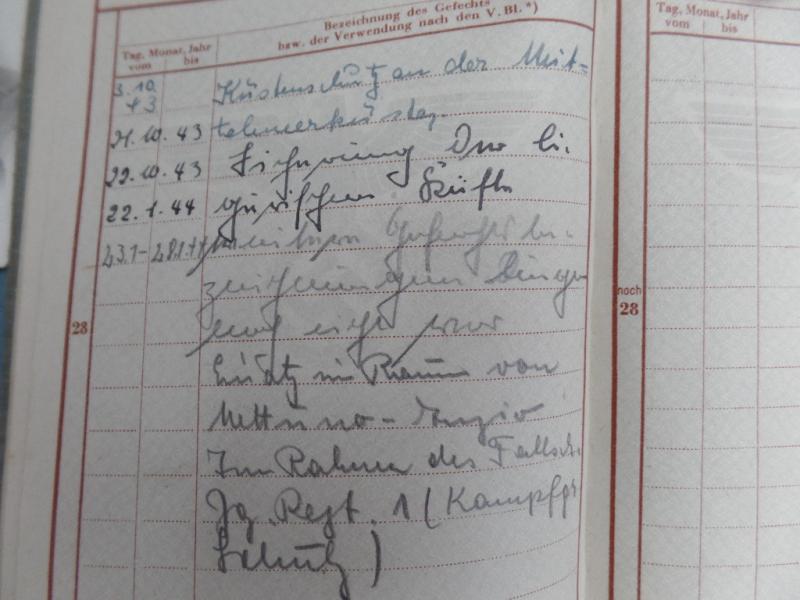 Bezeichnung des Gefechts
bzw. der Verwendung nach den V. Bl. *)
Tag, Monat, Jahr
vom bis
3.10.
43
Küstenschutz an der Mit-
21.10.43 telmeerküste.
22.10.43 Sicherung der li-
22.1.44 gurischen Küste
23.1- 28.1.44 weitere Gefechtsbe-
zeichnungen liegen
noch nicht vor
Einsatz im Raum von
Nettuno - Anzio
Im Rahmen des Fallsch.
Jg. Regt. 1 (Kampfgr.
Schulz)
28
Tag, Monat, Jahr
vom bis
noch
28